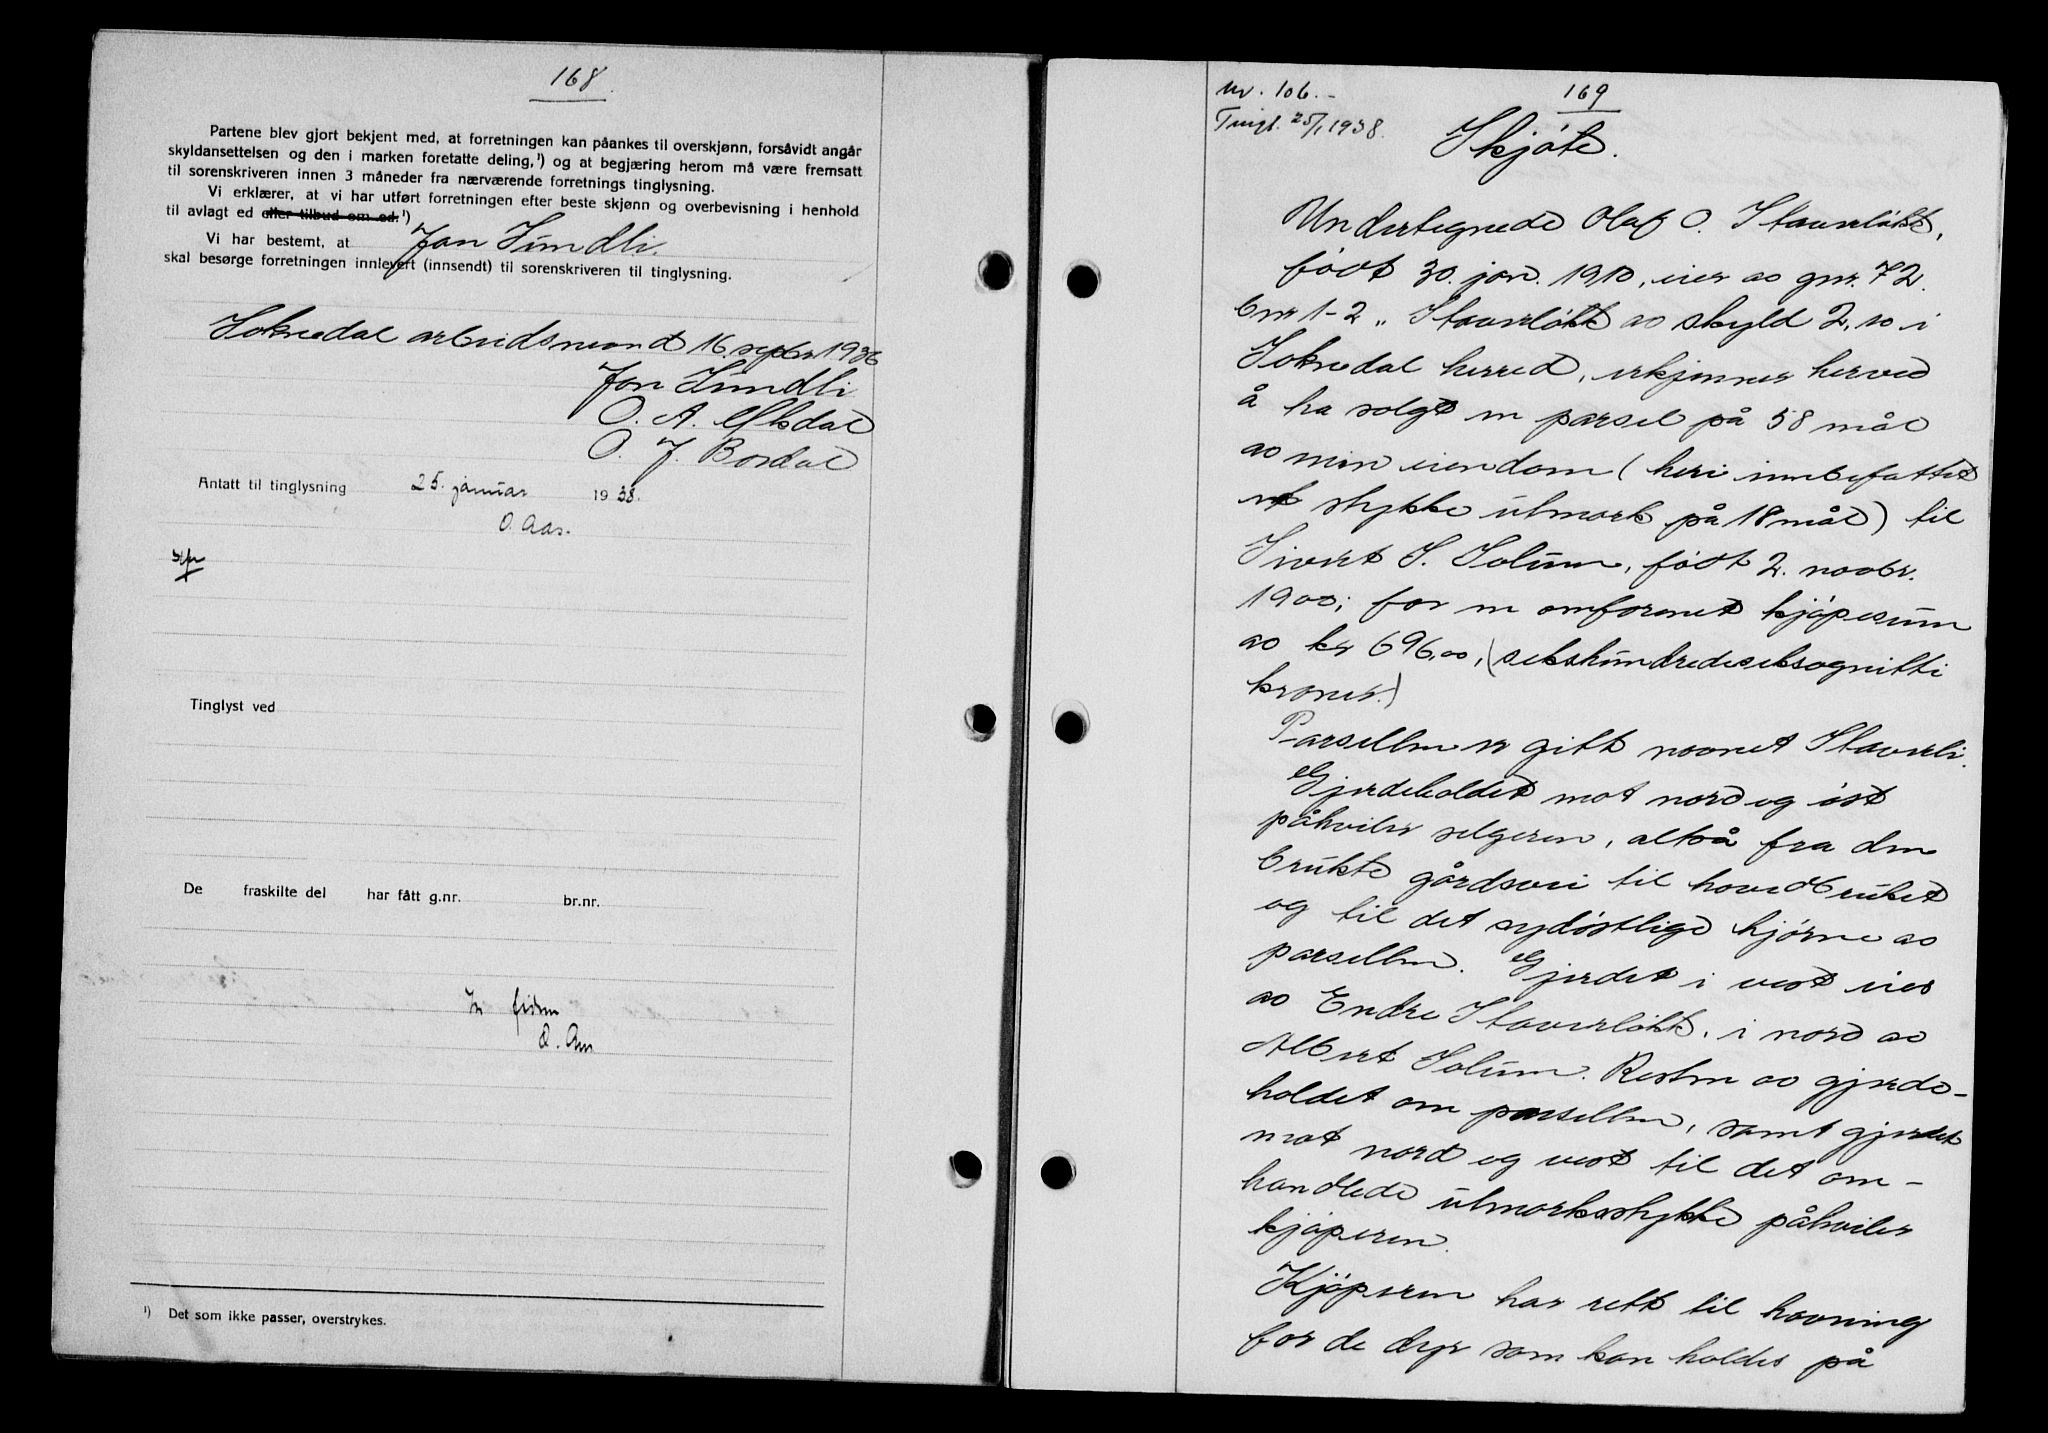 168.
Partene blev gjort bekjent med, at forretningen kan påankes til overskjønn, forsåvidt angår
skyldansettelsen og den i marken foretatte deling,¹) og at begjæring herom må være fremsatt
til sorenskriveren innen 3 måneder fra nærværende forretnings tinglysning.
Vi erklærer, at vi har utført forretningen efter beste skjønn og overbevisning i henhold
til avlagt ed eller tilbud om ed.¹)
Vi har bestemt, at Jon Hindli.
skal besørge forretningen innlevert (innsendt) til sorenskriveren til tinglysning.
Soknedal arbeidsmannd 16. septbr 1936
Jon
O. A.
O. J. Bordal
Antatt til tinglysning 25. januar 1938.
O. Aas.
Tinglyst ved
De fraskilte del har fått g.nr. br.nr.
In fidem
O. Aas
¹) Det som ikke passer, overstrykes.
nr. 106.-
169
Tingl. 25/1 1938.
Skjøte.
Undertegnede Olaf O. Staverløkk,
født 30. jan. 1910, eier av gnr. 72.
bnr 1-2 „ Staverløkk av skyld 2,10 i
Soknedal herred, erkjenner herved
å ha solgt en parsel på 58 mål
av min eiendom ( heri innbefattet
et stykke utmark på 18 mål) til
Sivert S. Solum, født 2. novbr.
1900; for en omforenet kjøpesum
av kr 696,00, (sekshundredeseksognitti
kroner.)
Parsellen er gitt navnet Staverli.
Gjerdeholdet mot nord og øst
påhviler selgeren, altså fra den
brukte gårdsvei til hovedbruket
og til det sydøstlige hjørne av
parsellen. Gjerdet i vest eies
av Endre Staverløkk, i nord av
Albert Solum. Resten av gjerde-
holdet om parsellen, samt gjerdet
mot nord og vest til det om-
handlede utmarksstykke påhviler
kjøperen.
Kjøperen har rett til havning
for de dyr som kan holdes på